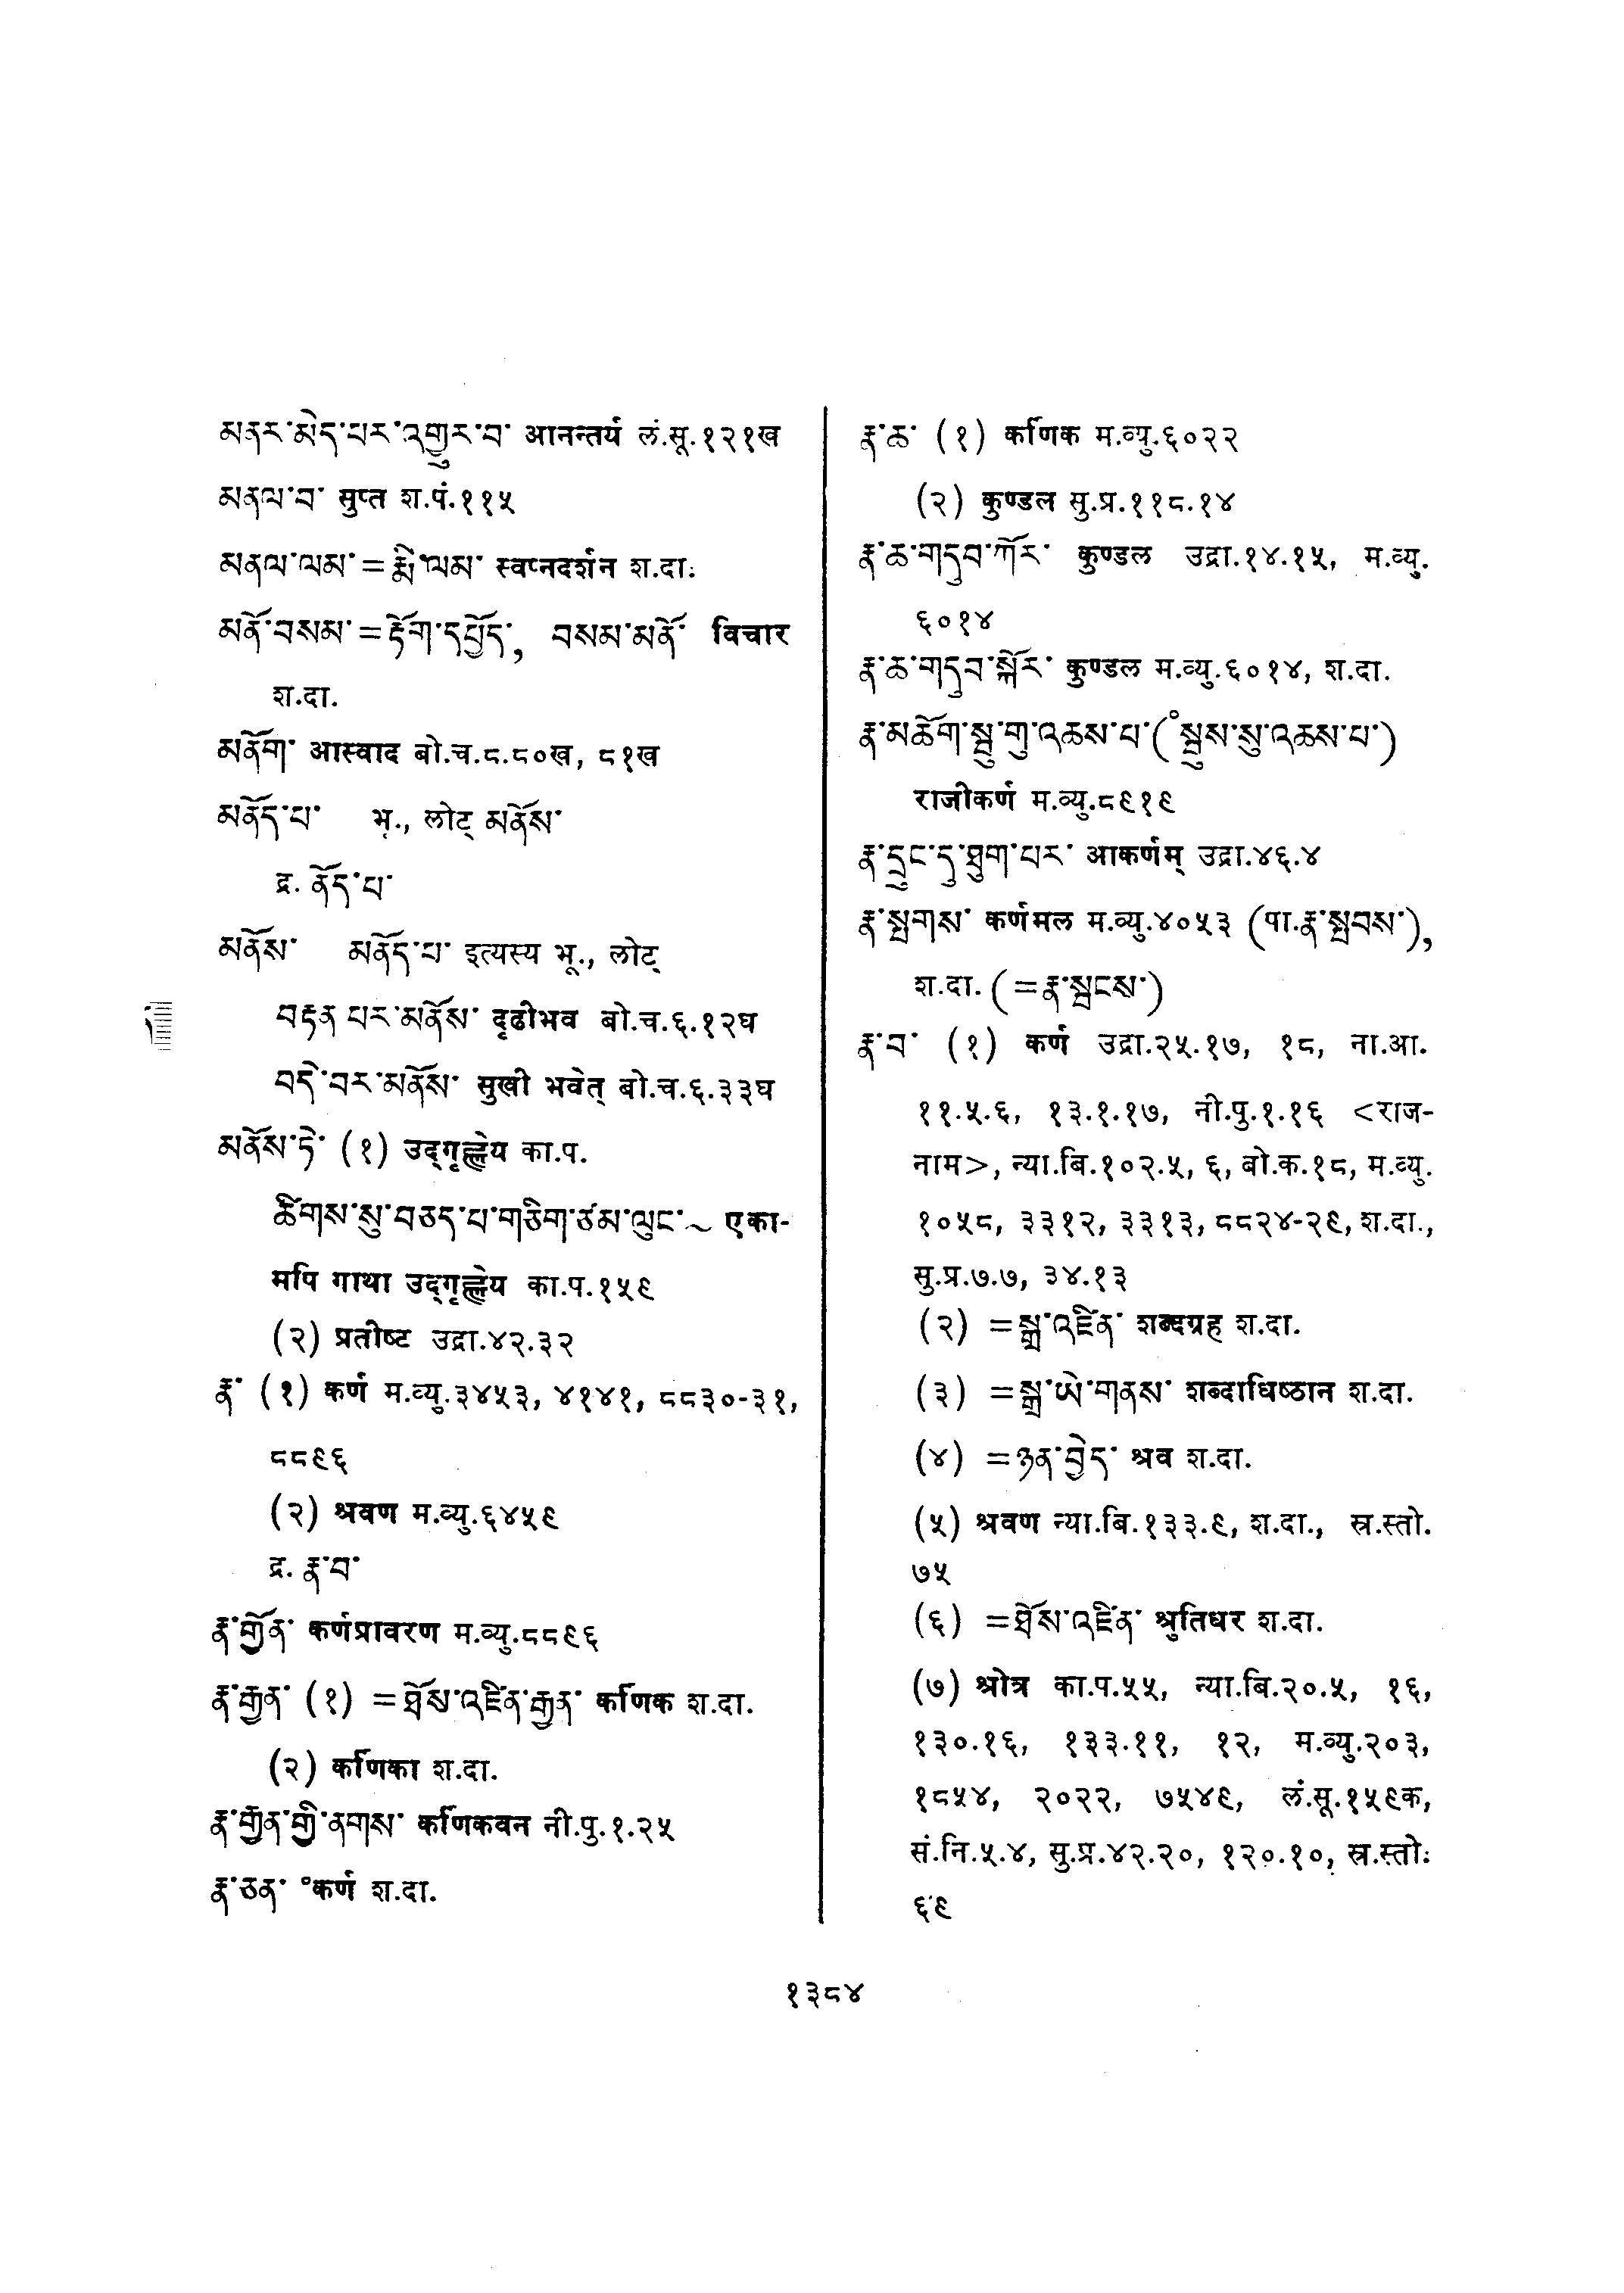 མནར་མེད་པར་འགྱུར་བ་ आनन्तर्य लं.सू.१२१ख
མནལ་བ་ सुप्त श.पं.११५
མནལ་ལམ་=རྨི་ལམ་ स्वप्नदर्शन श.दा.
མནོ་བསམ་=རྟོག་དཔྱོད་, བསམ་མནོ་ विचार
श.दा.
མནོག་ आस्वाद बो.च.८.८०ख, ८१ख
མནོད་པ་ भू., लोट् མནོས་
द्र. ནོད་པ་
མནོས་ མནོད་པ་ इत्यस्य भू., लोट्
བརྟན་པར་མནོས་ दृढीभव बो.च.६.१२घ
བདེ་བར་མནོས་ सुखी भवेत् बो.च.६.३३घ
མནོས་ཏེ་ (१) उद्गृह्णेय का.प.
ཚིགས་སུ་བཅད་པ་གཅིག་ཙམ་ལུང་~ एका-
मपि गाथा उद्गृह्णेय का.प.१५९
(२) प्रतीष्ट उद्रा.४२.३२
རྣ་ (१) कर्ण म.व्यु.३४५३, ४१४१, ८८३०-३१,
८८९६
(२) श्रवण म.व्यु.६४५९
द्र. རྣ་བ་
རྣ་གྱོན་ कर्णप्रावरण म.व्यु.८८९६
རྣ་རྒྱན་ (१) =ཐོས་འཛིན་རྒྱན་ कर्णिक श.दा.
(२) कर्णिका श.दा.
རྣ་རྒྱན་གྱི་ནགས་ कर्णिकवन नी.पु.१.२५
རྣ་ཅན་ °कर्ण श.दा.
རྣ་ཆ་ (१) कर्णिक म.व्यु.६०२२
(२) कुण्डल सु.प्र.११८.१४
རྣ་ཆ་གདུབ་ཀོར་ कुण्डल उद्रा.१४.१५, म.व्यु.
६०१४
རྣ་ཆ་གདུབ་སྐོར་ कुण्डल म.व्यु.६०१४, श.दा.
རྣ་མཆོག་སྦྲུ་གུ་འཆས་པ་(°སྦྲུས་སུ་འཆས་པ་)
राजीकर्ण म.व्यु.८९१९
རྣ་དྲུང་དུ་ཐུག་པར་ आकर्णम् उद्रा.४६.४
རྣ་སྤགས་ कर्णमल म.व्यु.४०५३ (पा.རྣ་སྤབས་),
श.दा. (=རྣ་སྦངས་)
རྣ་བ་ (१) कर्ण उद्रा.२५.१७, १८, ना.आ.
११.५.६, १३.१.१७, नी.पु.१.१६ <राज-
नाम>, न्या.बि.१०२.५, ६, बो.क.१८, म.व्यु.
१०५८, ३३१२, ३३१३, ८८२४-२९, श.दा.,
सु.प्र.७.७, ३४.१३
(२) =སྒྲ་འཛིན་ शब्दग्रह श.दा.
(३) =སྒྲ་ཡི་གནས་ शब्दाधिष्ठान श.दा.
(४) =ཉན་བྱེད་ श्रव श.दा.
(५) श्रवण न्या.बि.१३३.९, श.दा., स्र.स्तो.
७५
(६) =ཐོས་འཛིན་ श्रुतिधर श.दा.
(७) श्रोत्र का.प.५५, न्या.बि.२०.५, १६,
१३०.१६, १३३.११, १२, म.व्यु.२०३,
१८५४, २०२२, ७५४९, लं.सू.१५९क,
सं.नि.५.४, सु.प्र.४२.२०, १२०.१०, स्र.स्तो.
६९
१३८४